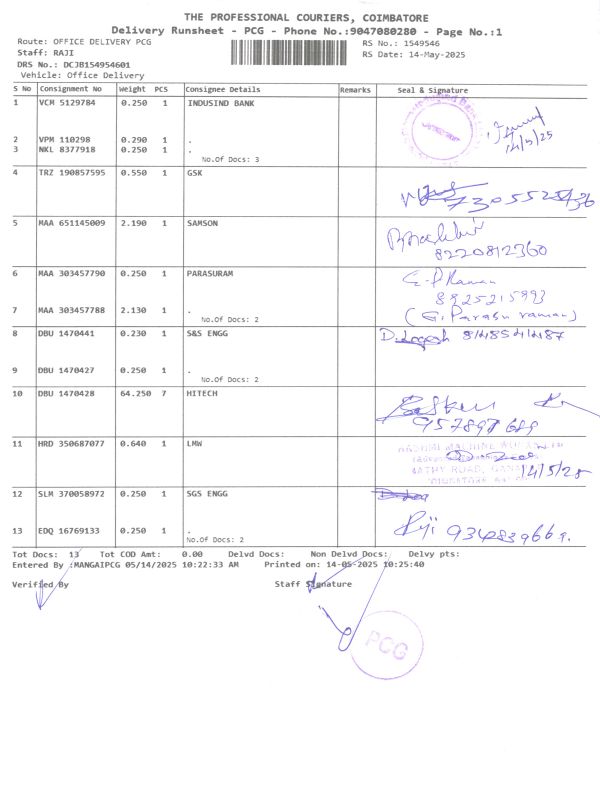 THE PROFESSIONAL COURIERS, COIMBATORE
Delivery Runsheet - PCG - Phone No.:9047080280 - Page No.:1
Route: OFFICE DELIVERY PCG RS No.: 1549546
Staff: RAJI RS Date: 14-May-2025
DRS No.: DCJB154954601
Vehicle: Office Delivery
S No Consignment No Weight PCS Consignee Details Remarks Seal & Signature
1 VCM 5129784 0.250 1 INDUSIND BANK
14/5/25
2 VPM 110298 0.290 1 .
3 NKL 8377918 0.250 1 .
No.Of Docs: 3
4 TRZ 190857595 0.550 1 GSK
5 MAA 651145009 2.190 1 SAMSON
8220812360
6 MAA 303457790 0.250 1 PARASURAM
8925215993
7 MAA 303457788 2.130 1 . (G. Parasu raman)
No.Of Docs: 2
8 DBU 1470441 0.230 1 S&S ENGG
9 DBU 1470427 0.250 1 .
No.Of Docs: 2
10 DBU 1470428 64.250 7 HITECH
11 HRD 350687077 0.640 1 LMW
14/5/25
12 SLM 370058972 0.250 1 SGS ENGG
13 EDQ 16769133 0.250 1 .
No.Of Docs: 2
Tot Docs: 13 Tot COD Amt: 0.00 Delvd Docs: Non Delvd Docs: Delvy pts:
Entered By :MANGAIPCG 05/14/2025 10:22:33 AM Printed on: 14-05-2025 10:25:40
Verified By Staff Signature
PCG